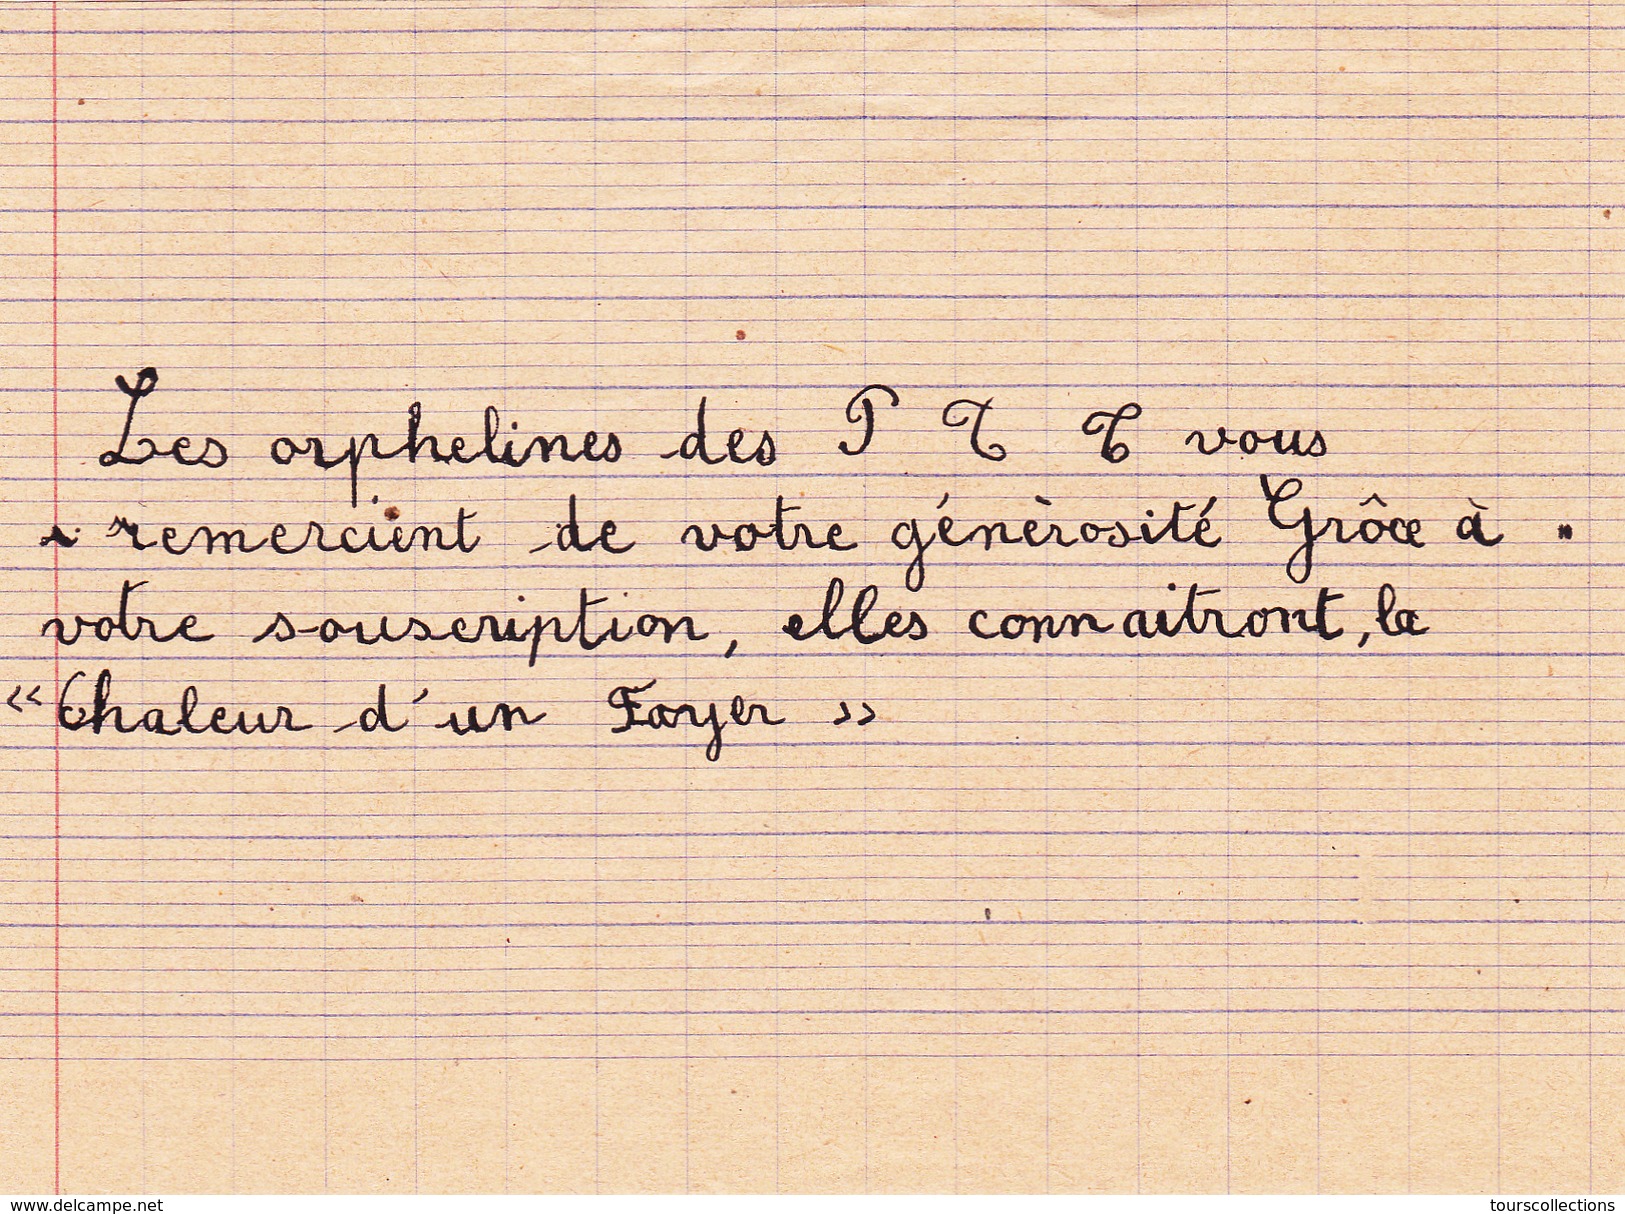 Les orphelines des P T T vous
remercient de votre générosité Grâce à
votre souscription, elles connaitront, la
"Chaleur d'un Foyer"
www.delcampe.net
tourscollections